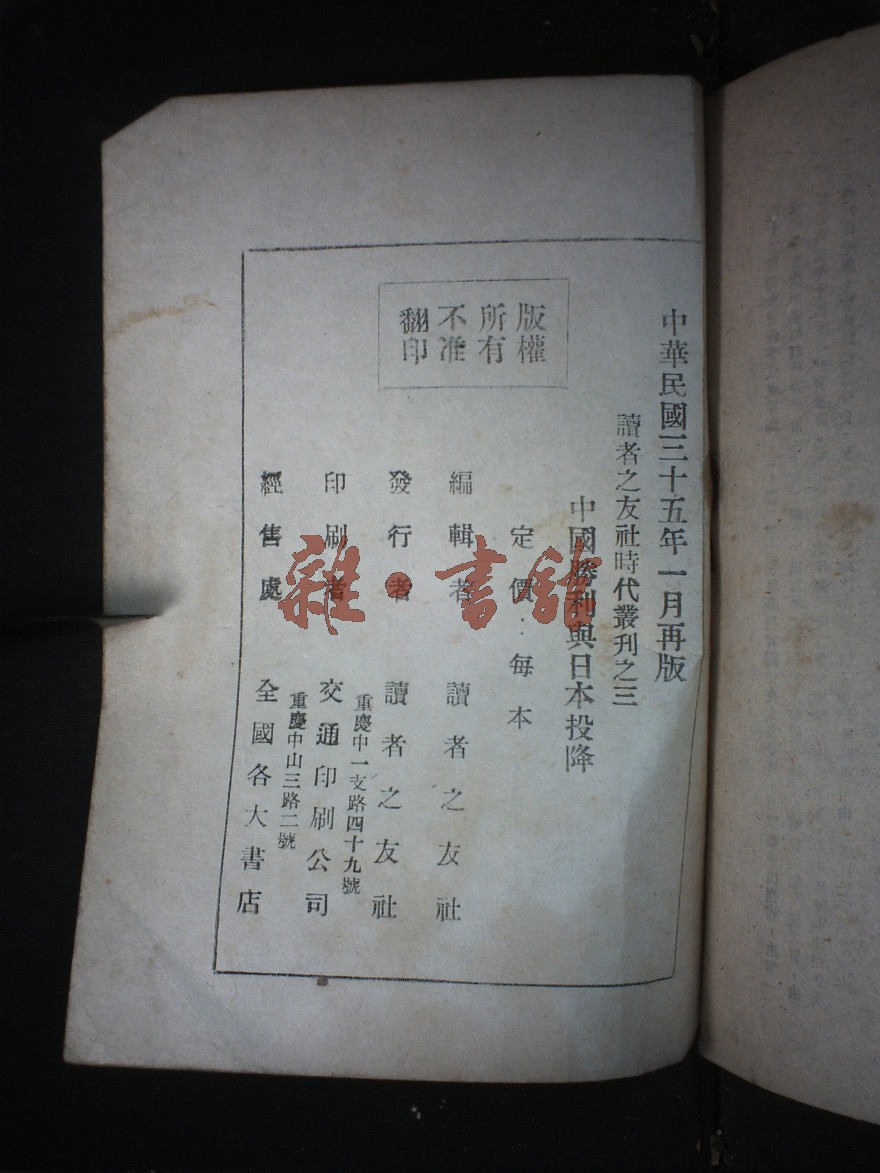 中華民國三十五年一月再版
讀者之友社時代叢刊之三
中國勝利與日本投降
定價：每本
版權
所有
不准
翻印
編輯者 讀者之友社
發行者 讀者之友社
重慶中一支路四十九號
印刷者 交通印刷公司
重慶中山三路二號
經售處 全國各大書店
雜·書館